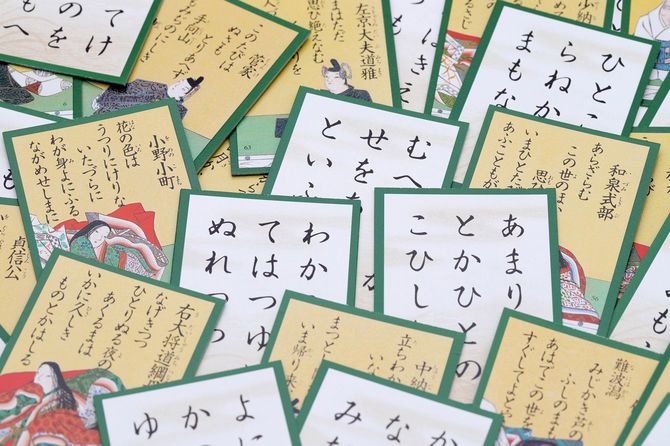 菅家
このたびは
ぬさも
とりあへず
手向山
もみぢのに
左京大夫道雅
まはただ
思ひ絶えなむ
ひと
らねか
まもな
小野小町
花の色は
うつりにけりな
いたづらに
わが身よにふる
ながめせしまに
むへ
といふ
和泉式部
あらざらむ
この世のほか
思ひ
いまひとたび
あふこともが
貞信公
わか
てはつゆ
ぬれつ
あまり
とかひとの
こひし
右大将道綱
なげきつつ
ひとりぬる夜の
あくるまは
いかに久しき
ものとかはしる
中納
立ちわかれ
いな
まつと
いま帰り来
難波潟
みじかき芦の
ふしのまも
あはでこの世を
すぐしてよとや
よに
かつ
ゆ
なか
み
63
56